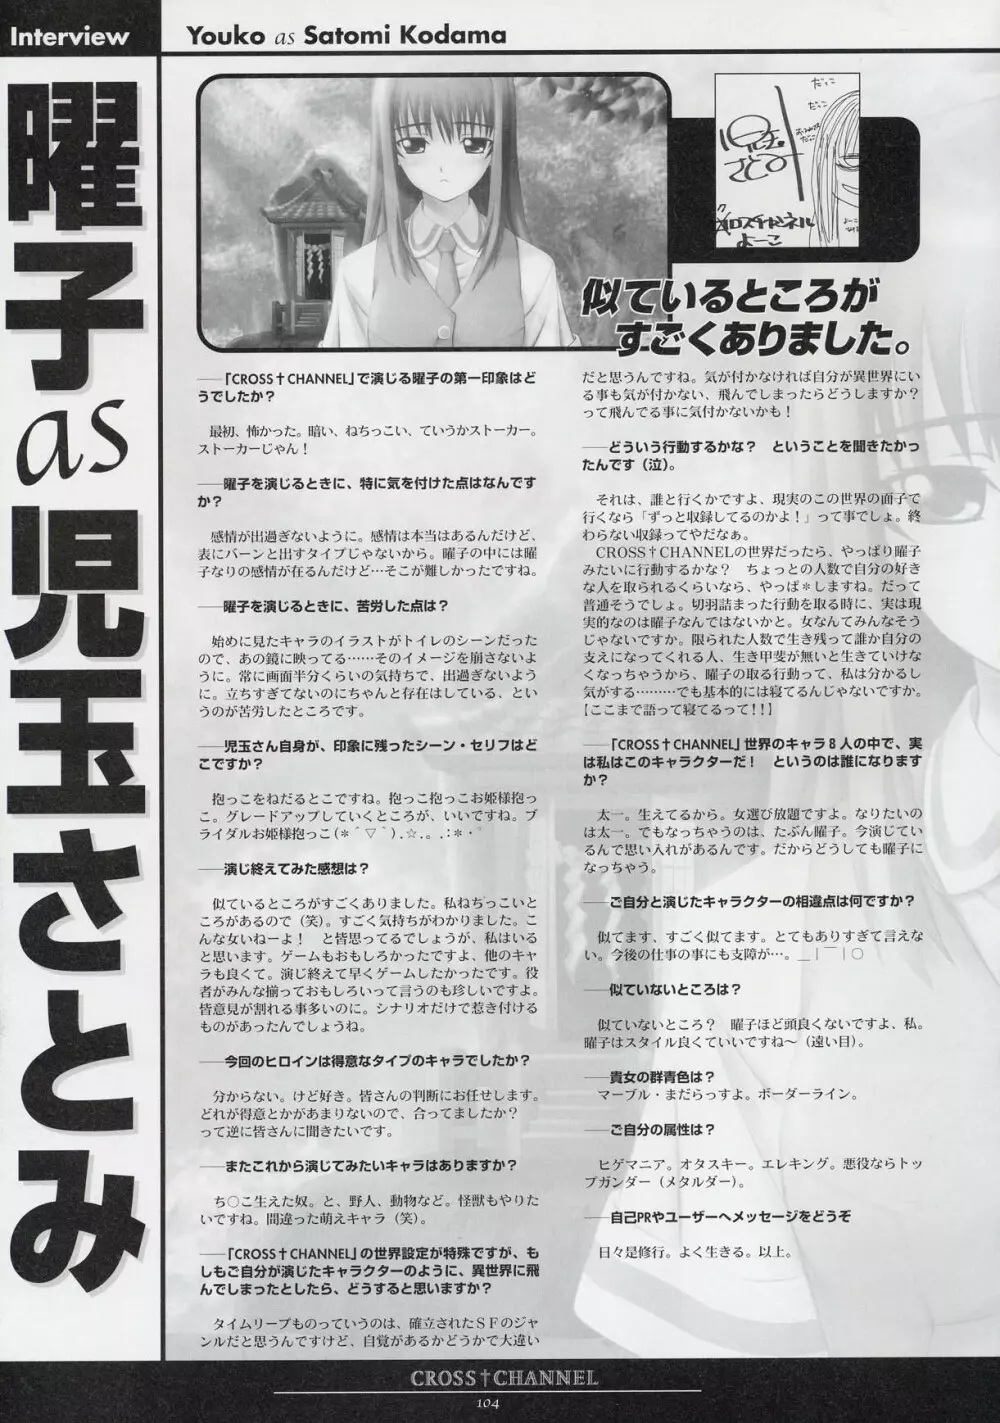 Interview
Youko as Satomi Kodama
曜子as児玉さとみ
だっこ
だっこ
児玉
さとみ
クロスチャンネル
よーこ
似ているところが
すごくありました。
──「CROSS†CHANNEL」で演じる曜子の第一印象はど
うでしたか?
最初、怖かった。暗い、ねちっこい、ていうかストーカー。
ストーカーじゃん!
──曜子を演じるときに、特に気を付けた点はなんです
か?
感情が出過ぎないように。感情は本当はあるんだけど、
表にバーンと出すタイプじゃないから。曜子の中には曜
子なりの感情が在るんだけど…そこが難しかったですね。
──曜子を演じるときに、苦労した点は?
始めに見たキャラのイラストがトイレのシーンだった
ので、あの鏡に映ってる……そのイメージを崩さないよう
に。常に画面半分くらいの気持ちで、出過ぎないよう
に。立ちすぎてないのにちゃんと存在はしている、とい
うのが苦労したところです。
──児玉さん自身が、印象に残ったシーン・セリフはど
こですか?
抱っこをねだるとこですね。抱っこ抱っこお姫様抱っ
こ。グレードアップしていくところが、いいですね。ブ
ライダルお姫様抱っこ(*´▽`).☆.。.:*・゜
──演じ終えてみた感想は?
似ているところがすごくありました。私ねちっこいと
ころがあるので(笑)。すごく気持ちがわかりました。こ
んな女いねーよ! と皆思ってるでしょうが、私はいる
と思います。ゲームもおもしろかったですよ、他のキャ
ラも良くて。演じ終えて早くゲームしたかったです。役
者がみんな揃っておもしろいって言うのも珍しいですよ。
皆意見が割れる事多いのに。シナリオだけで惹き付ける
ものがあったんでしょうね。
──今回のヒロインは得意なタイプのキャラでしたか?
分からない。けど好き。皆さんの判断にお任せします。
どれが得意とかがあまりないので、合ってましたか?
って逆に皆さんに聞きたいです。
──またこれから演じてみたいキャラはありますか?
ち○こ生えた奴。と、野人、動物など。怪獣もやりた
いですね。間違った萌えキャラ(笑)。
──「CROSS†CHANNEL」の世界設定が特殊ですが、も
しもご自分が演じたキャラクターのように、異世界に飛
んでしまったとしたら、どうすると思いますか?
タイムリープものっていうのは、確立されたSFのジャ
ンルだと思うんですけど、自覚があるかどうかで大違い
だと思うんですね。気が付かなければ自分が異世界にい
る事も気が付かない、飛んでしまったらどうしますか?
って飛んでる事に気付かないかも!
──どういう行動するかな? ということを聞きたかっ
たんです(泣)。
それは、誰と行くかですよ、現実のこの世界の面子で
行くなら「ずっと収録してるのかよ!」って事でしょ。終
わらない収録ってやだなぁ。
CROSS†CHANNELの世界だったら、やっぱり曜子
みたいに行動するかな? ちょっとの人数で自分の好き
な人を取られるくらいなら、やっぱ*しますね。だって
普通そうでしょ。切羽詰まった行動を取る時に、実は現
実的なのは曜子なんではないかと。女なんてみんなそう
じゃないですか。限られた人数で生き残って誰か自分の
支えになってくれる人、生き甲斐が無いと生きていけな
くなっちゃうから、曜子の取る行動って、私は分かるし
気がする………でも基本的には寝てるんじゃないですか。
【ここまで語って寝てるって!!】
──「CROSS†CHANNEL」世界のキャラ8人の中で、実
は私はこのキャラクターだ! というのは誰になります
か?
太一。生えてるから。女選び放題ですよ。なりたいの
は太一。でもなっちゃうのは、たぶん曜子。今演じてい
るんで思い入れがあるんです。だからどうしても曜子に
なっちゃう。
──ご自分と演じたキャラクターの相違点は何ですか?
似てます、すごく似てます。とてもありすぎて言えな
い。今後の仕事の事にも支障が…。_|￣|○
──似ていないところは?
似ていないところ? 曜子ほど頭良くないですよ、私。
曜子はスタイル良くていいですね〜(遠い目)。
──貴女の群青色は?
マーブル・まだらっすよ。ボーダーライン。
──ご自分の属性は?
ヒゲマニア。オタスキー。エレキング。悪役ならトッ
プガンダー(メタルダー)。
──自己PRやユーザーへメッセージをどうぞ
日々是修行。よく生きる。以上。
CROSS†CHANNEL
104